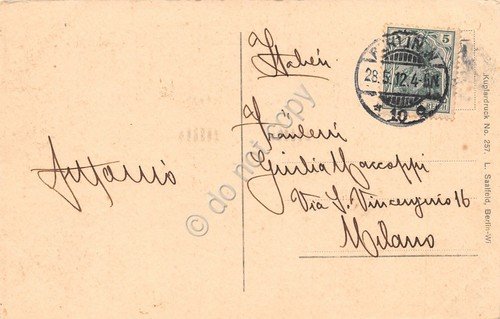 Italien
Fräulein
Giulia Maccoppi
Via S. Vincenzino 16
Milano
BERLIN.W
28.5.12.4-5N.
* 10 g
5
Kupferdruck No. 257. L. Saalfeld, Berlin-Wi
do not copy